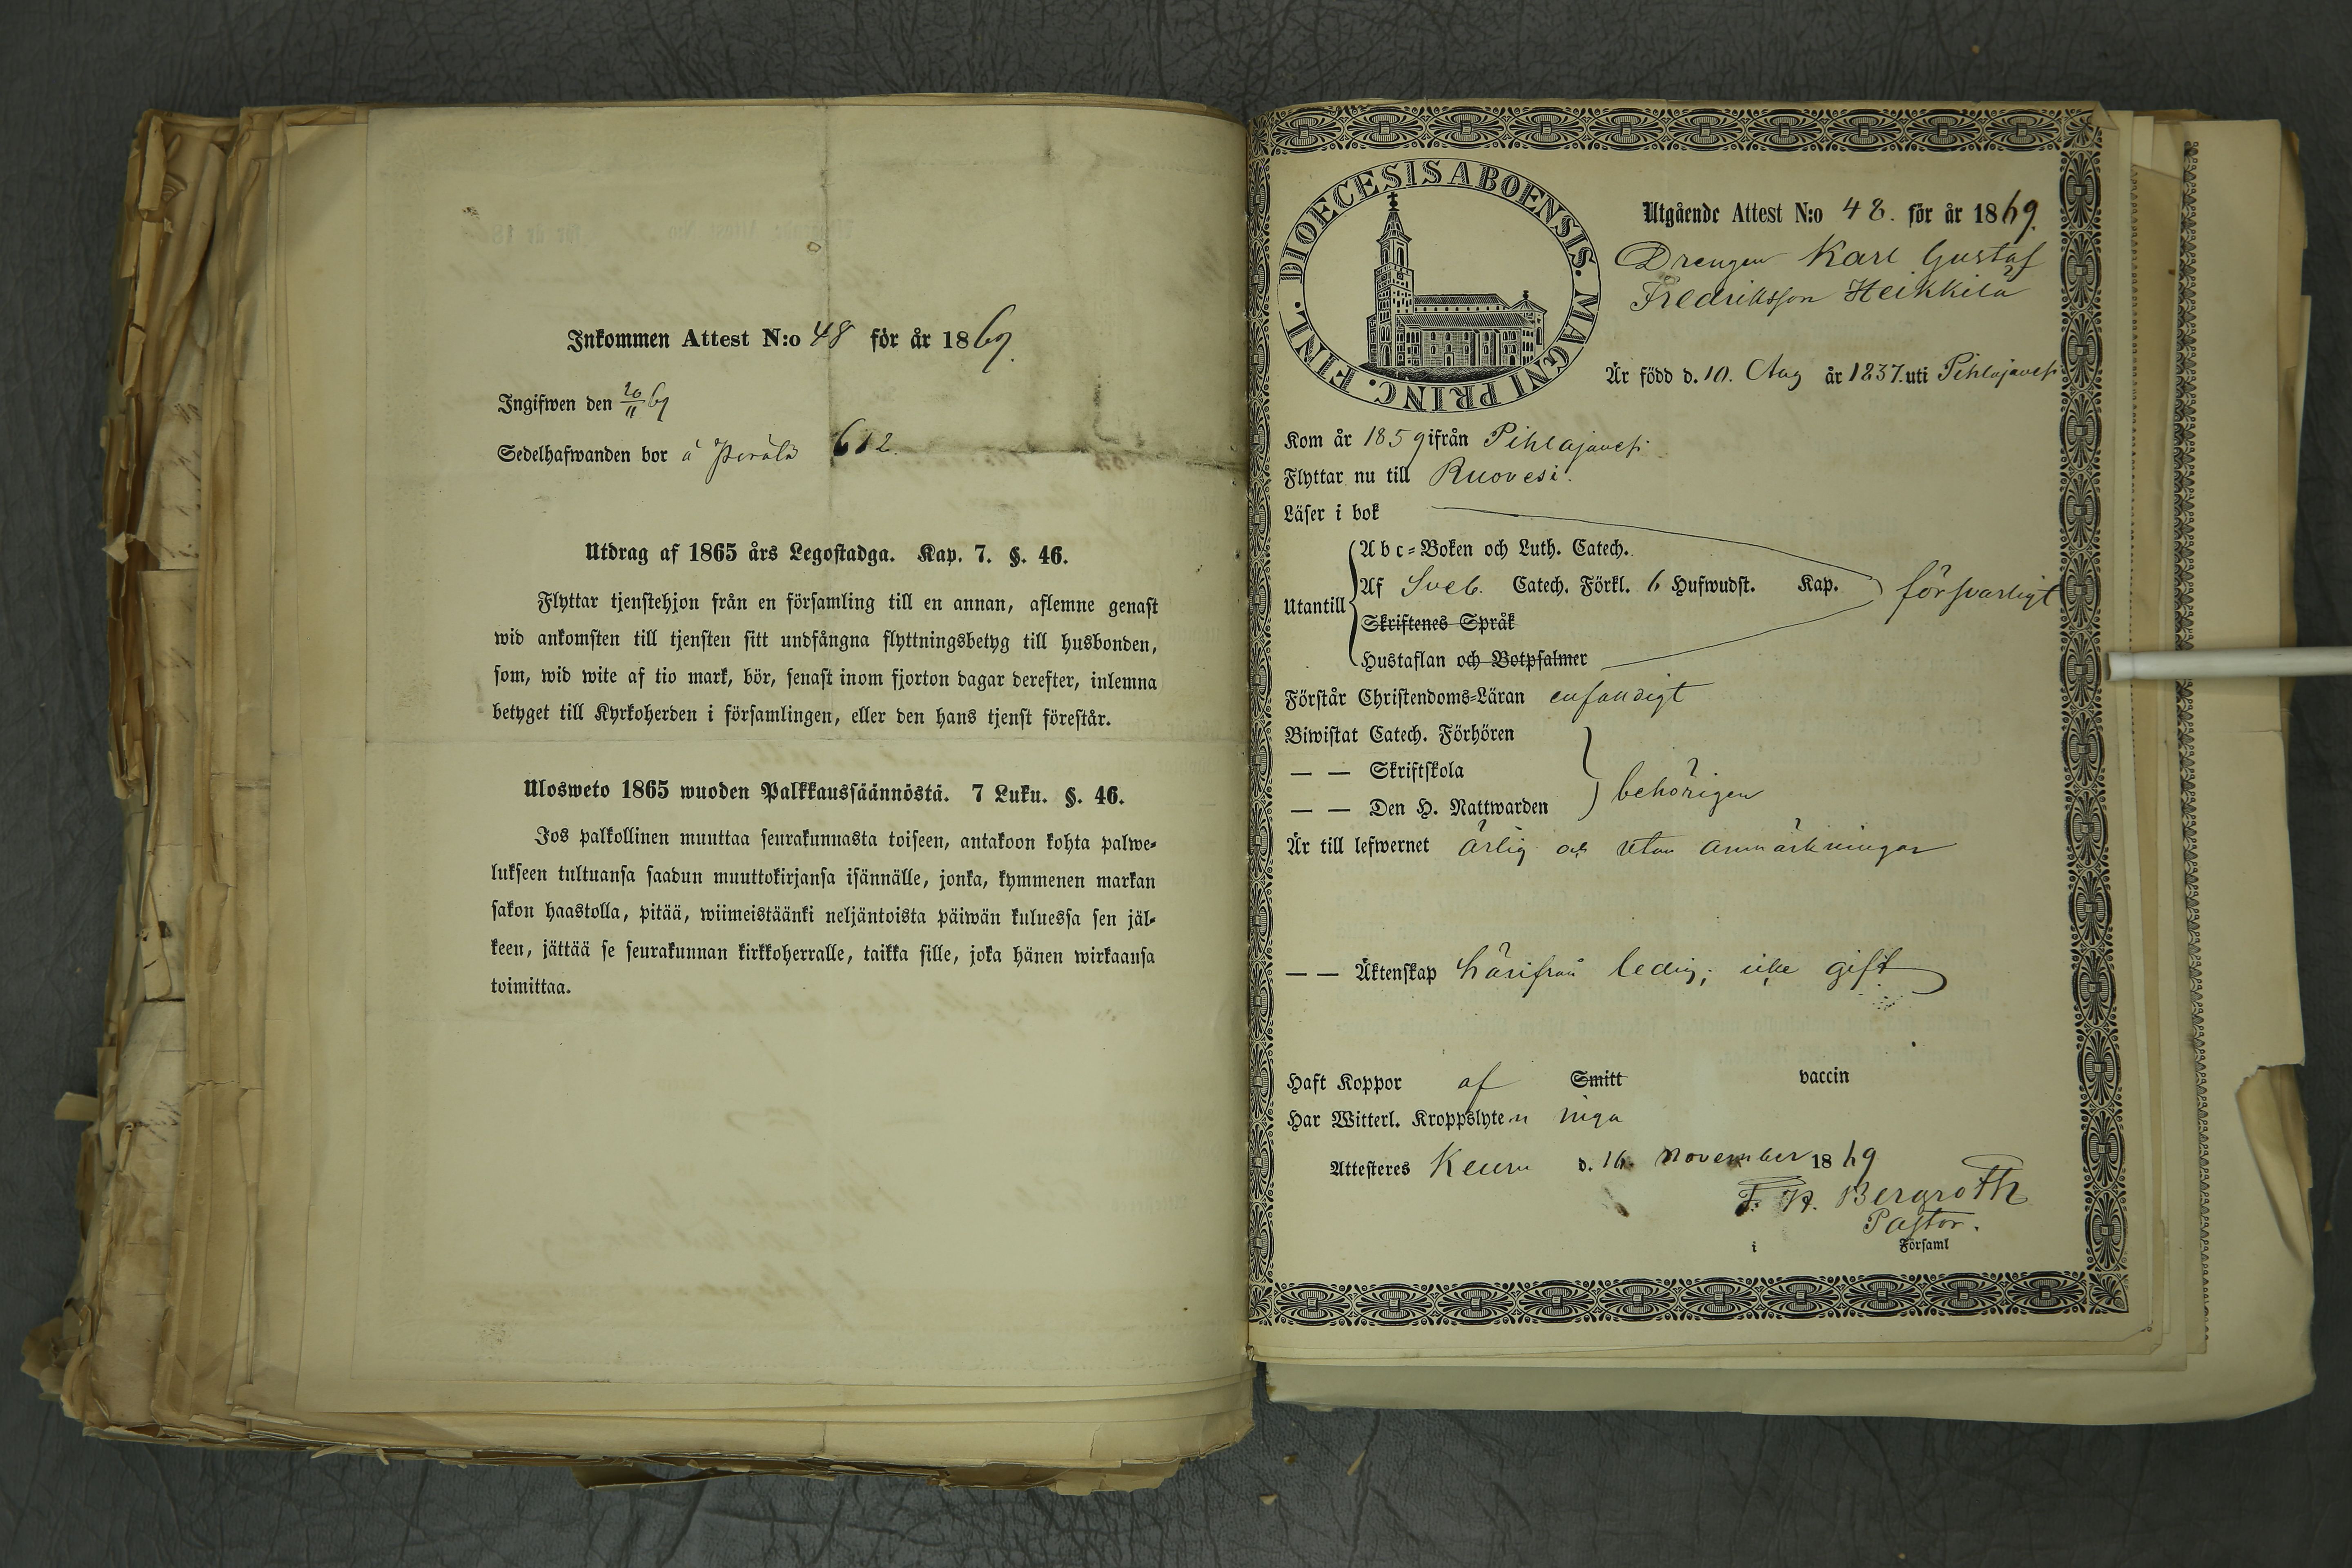 Inkommen Attest N:o 48 för år 1869.
Ingifwen den 20/11 69
Sedelhafwanden bor å Perälä 612.
Utdrag af 1865 års Legostadga. Kap. 7. §. 46.
Flyttar tjenstehjon från en församling till en annan, aflemne genast
wid ankomsten till tjensten sitt undfångna flyttningsbetyg till husbonden,
som, wid wite af tio mark, bör, senast inom fjorton dagar derefter, inlemna
betyget till Kyrkoherden i församlingen, eller den hans tjenst förestår.
Ulosweto 1865 wuoden Palkkaussäännöstä. 7 Luku. §. 46.
Jos palkollinen muuttaa seurakunnasta toiseen, antakoon kohta palwe-
lukseen tultuansa saadun muuttokirjansa isännälle, jonka, kymmenen markan
sakon haastolla, pitää, wiimeistäänki neljäntoista päiwän kuluessa sen jäl-
keen, jättää se seurakunnan kirkkoherralle, taikka sille, joka hänen wirkaansa
toimittaa.
DIOECESIS ABOENSIS. MAGNI PRINC. FINL.
Utgående Attest N:o 48. för år 1869.
Drengen Karl Gustaf
Fredriksson Heikkilä
Är född d. 10. Aug år 1837. uti Pihlajavesi
Kom år 1859 ifrån Pihlajavesi
Flyttar nu till Ruovesi.
Läser i bok
Utantill
Abc-Boken och Luth. Catech.
Af Sveb. Catech. Förkl. 6 Hufwudst. Kap.
Skriftenes Språk
Hustaflan och Botpsalmer
försvarligt
Förstår Christendoms-Läran enfaldigt
Biwistat Catech. Förhören
— — Skriftskola
— — Den H. Nattwarden
behörigen
Är till lefwernet ärlig och utan anmärkningar
— — Äktenskap härifrån ledig; icke gift
Haft Koppor af Smitt vaccin
Har Witterl. Kroppslyten inga
Attesteres Keuru d. 16. November 1869
F. H. Bergroth
Pastor.
i Församl